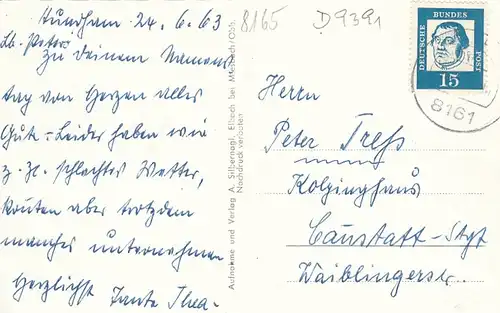 Hundham 24.6.63
Lb. Peter!
zu deinem Namens
tag von Herzen alles
Gute – Leider haben wir
z. Zt. schlechtes Wetter,
konnten aber trotzdem
manches unternehmen
Herzlichst Tante Thea-
8165
D9391
Aufnahme und Verlag A. Silbernagl, Elbach bei Miesbach/Obb.
Nachdruck verboten
DEUTSCHE BUNDES POST
15
8161
Herrn
Peter Tress
Kolpinghaus
Cannstatt-Stgt
Waiblingerstr.